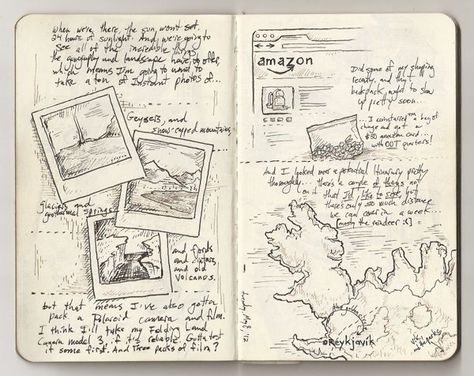 when we're there, the sun won't set.
24 hours of sunlight. And we're going to
see all of the incredible things
the geography and landscape have to offer,
which means I'm going to want to
take a ton of Instant photos of...
Geysers, and
snow-capped mountains,
glaciers and
geothermal springs,
and fjords
and
and old
volcanos.
but that means I've also gotta
pack a Polaroid camera and film.
I think I'll take my Folding Land
Camera model 3, if it's reliable. Gotta test
it some first. And Three packs of film?
amazon
Did some of my shopping
recently, and the
backpack ought to show
up pretty soon...
...I coinstarred bag of
change and got
$50 amazon card...
with OUT quarters!
And I looked over a potential itinerary pretty
thoroughly... there's a couple of things not
on it that I'd like to see, but
there's only so much distance
we can cover in a week...
Reykjavik